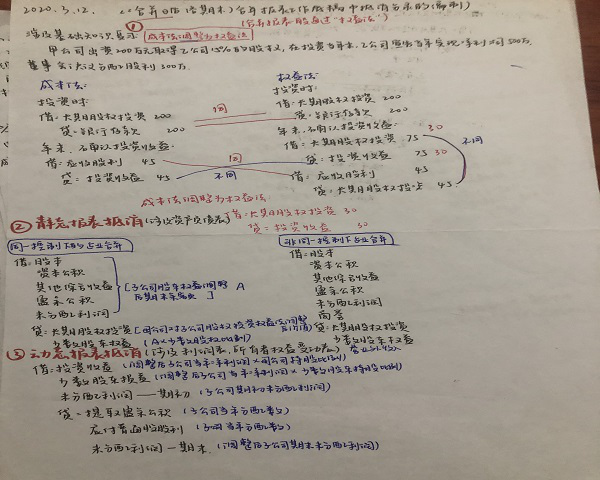 2020.3.12. <合并日后(期末)合并报表工作底稿中抵消分录的编制>
(合并报表股资过"权益法")
涉及基础知识复习 ① 成本法调整为权益法
甲公司出资200万元取得乙公司15%的股权,在投资当年末.乙公司宣告当年实现净利润500万.
董事会决议分配股利300万.
成本法:
投资时:
借:长期股权投资 200
贷:银行存款 200
年末.不确认投资收益.
借:应收股利 45
贷:投资收益 45
同
同
不同
权益法:
投资时:
借:长期股权投资 200
贷:银行存款 200
年末.确认投资收益:
借:长期股权投资 75 30
贷:投资收益 75 30
借:应收股利 45
贷:长期股权投资 45
不同
成本法调整为权益法
借:长期股权投资 30
贷:投资收益 30
② 静态报表抵消(涉及资产负债表)
同一控制下的企业合并
借:股本
资本公积
其他综合收益
盈余公积
未分配利润
[子公司股东权益调整后期末余额] A
贷:长期股权投资 [母公司对子公司股权投资权益法调整后的]
少数股东权益 (A×少数股权比例)
非同一控制下企业合并
借:股本
资本公积
其他综合收益
盈余公积
未分配利润
商誉
贷:长期股权投资
少数股东权益
③ 动态报表抵消(涉及利润表,所有者权益变动表)
借:投资收益 (调整后子公司当年净利润×母公司持股比例)
少数股东损益 (调整后子公司当年净利润×少数股东持股比例)
未分配利润——期初 (子公司期初未分配利润)
贷:提取盈余公积 (子公司当年分配数)
应付普通股股利 (子公司当年分配数)
未分配利润—期末 (调整后子公司期末未分配利润)